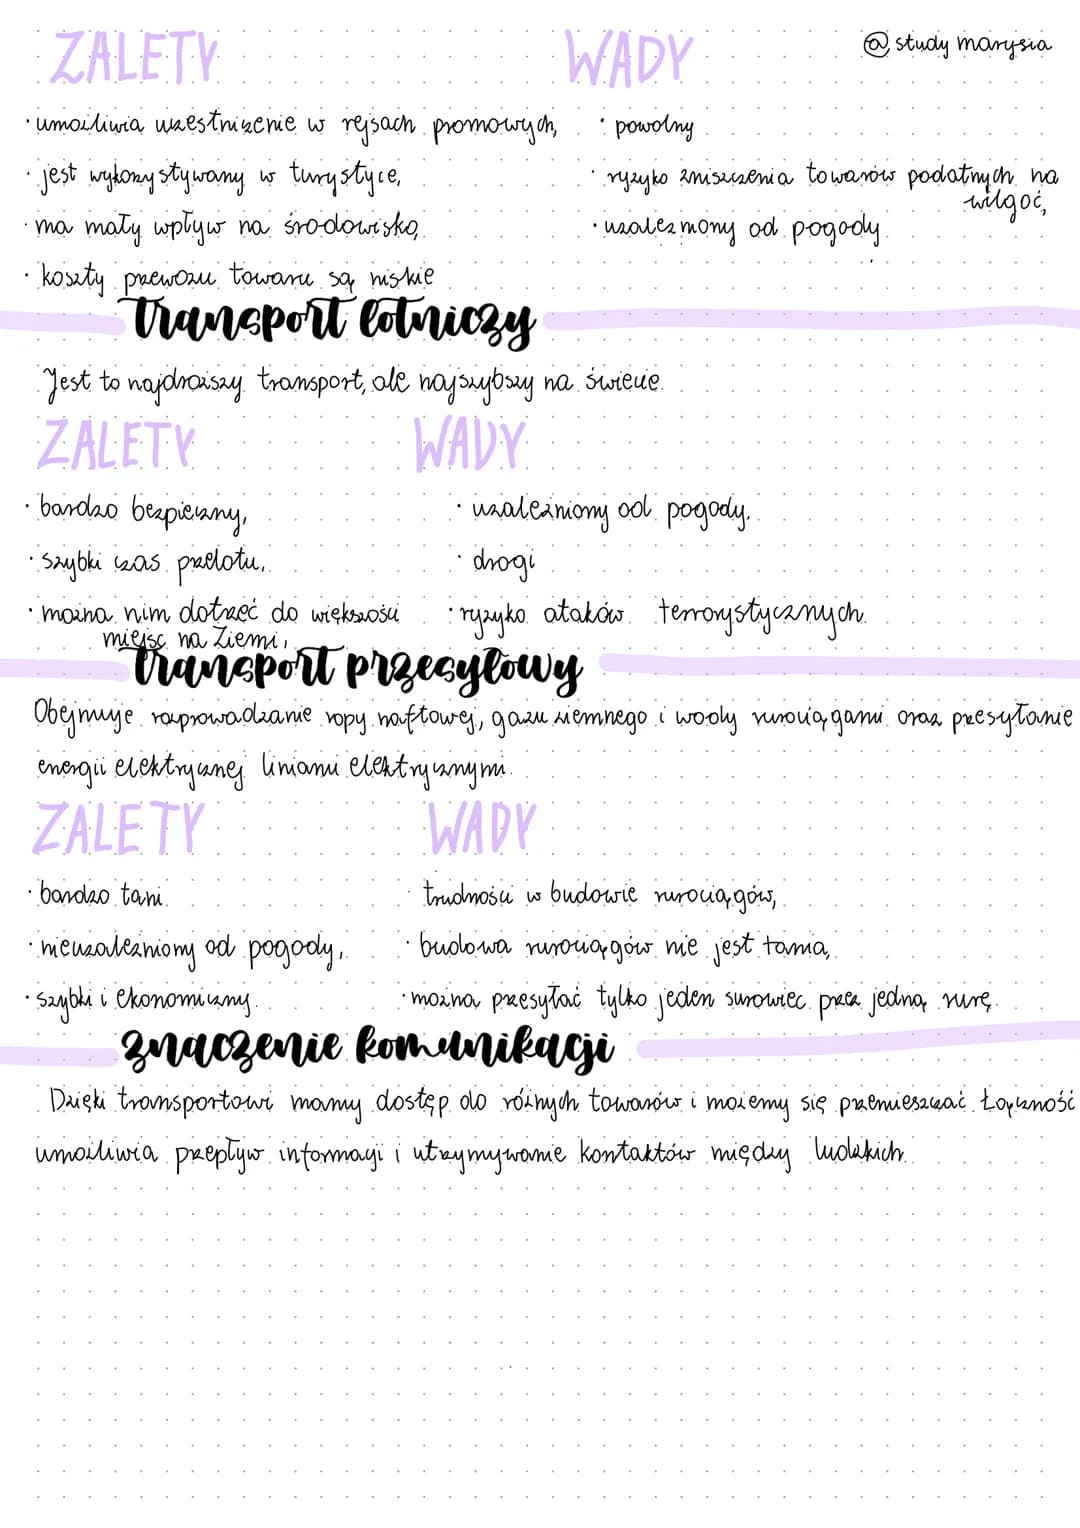 ZALETY WADY @study marysia
· umożliwia uczestniczenie w rejsach promowych, · powolny
· jest wykorzystywany w turystyce, · ryzyko zniszczenia towarów podatnych na
wilgoć,
· ma mały wpływ na środowisko, · uzależniony od pogody
· koszty przewozu towaru są niskie
transport lotniczy
Jest to najdroższy transport, ale najszybszy na świecie.
ZALETY WADY
· bardzo bezpieczny, · uzależniony od pogody.
· szybki czas przelotu, · drogi
· można nim dotrzeć do większości · ryzyko ataków terrorystycznych.
miejsc na Ziemi,
transport przesyłowy
Obejmuje rozprowadzanie ropy naftowej, gazu ziemnego i wody rurociągami oraz przesyłanie
energii elektrycznej liniami elektrycznymi.
ZALETY WADY
· bardzo tani · trudności w budowie rurociągów,
· nieuzależniony od pogody, · budowa rurociągów nie jest tania,
· szybki i ekonomiczny. · można przesyłać tylko jeden surowiec przez jedną rurę.
znaczenie komunikacji
Dzięki transportowi mamy dostęp do różnych towarów i możemy się przemieszczać. Łączność
umożliwia przepływ informacji i utrzymywanie kontaktów między ludzkich.